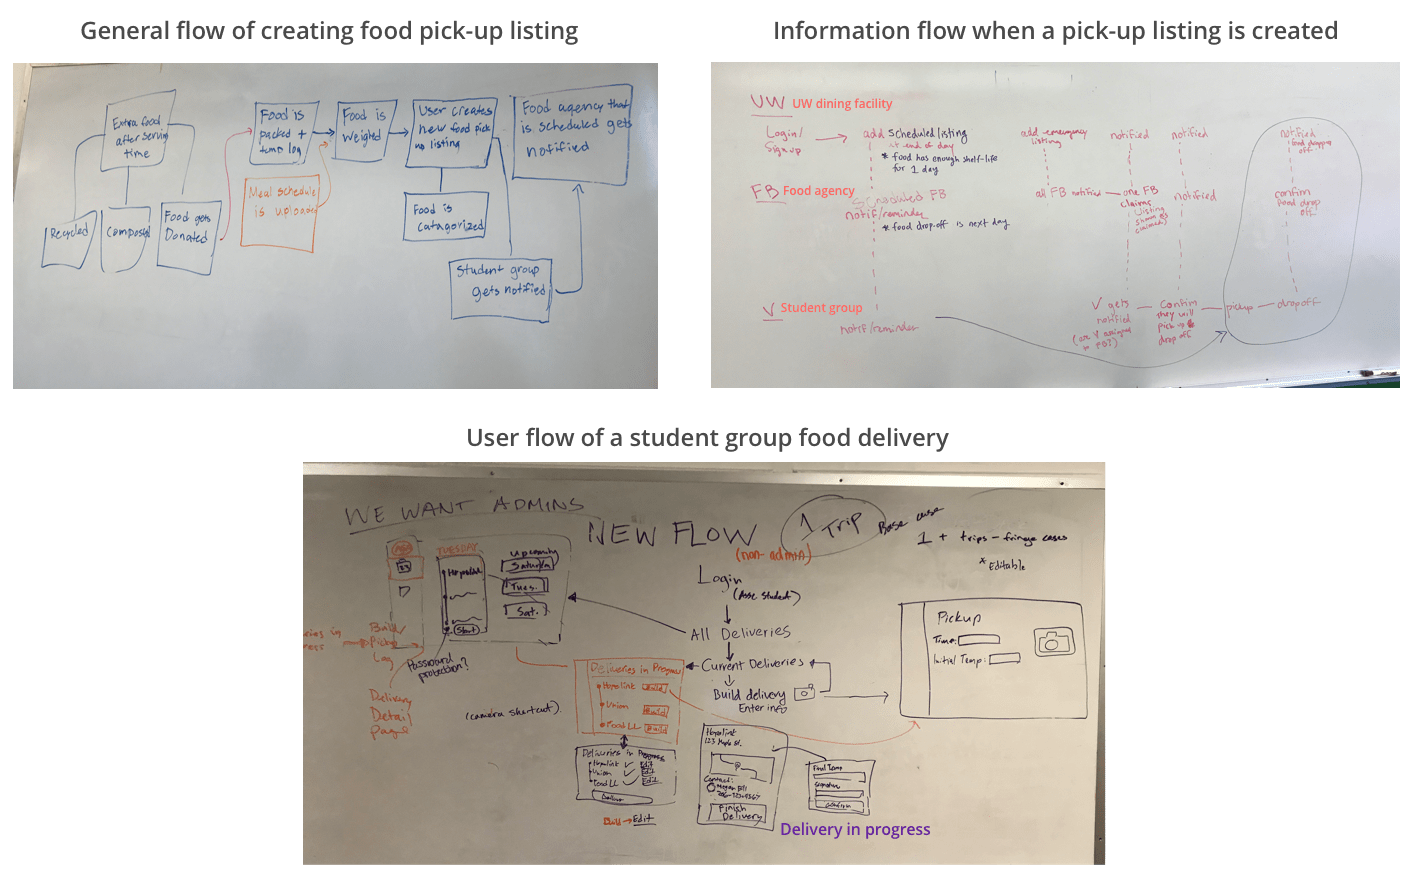 General flow of creating food pick-up listing
Extra food
after serving
time
Recycled
Composted
Food gets
Donated
Food is
packed +
temp log
Meal schedule
is uploaded
Food is
weighed
User creates
new food pick
up listing
Food is
Catagorized
Student group
gets notified
Food agency that
is scheduled gets
notified
Information flow when a pick-up listing is created
UW UW dining facility
Login/
Signup
add scheduled listing
at end of day
* food has enough shelf-life
for 1 day
add emergency
listing
notified
notified
notified
food dropped
off
FB Food agency
Scheduled FB
notif/reminder
* food drop-off is next day
all FB notified
one FB
claims
(listing
shown as
claimed)
notified
confirm
food drop
off
V Student group
notif/reminder
V gets
notified
confirm
they will
pick →
drop off
pickup
dropoff
User flow of a student group food delivery
WE WANT ADMINS
NEW FLOW
(non-admin)
1 Trip
Base case
1 + trips - fringe cases
* Editable
TUESDAY
Hopelink
Start
Upcoming
Saturday
Tues.
Sat.
Build
Pickup
Log
Password
protection?
Delivery
Detail
page
(camera shortcut).
Login
All Deliveries
Current Deliveries
Build delivery
Enter info
Pickup
Time:
Initial Temp:
Deliveries in Progress
Hopelink Build
Union Build
Food LL Build
Deliveries in Progress
Hopelink ✓ Edit
Union ✓ Edit
Food LL ✓ Edit
Build → Edit
Hopelink
123 Maple St.
Contact:
Finish
Delivery
Final Temp
Signature
Delivery in progress